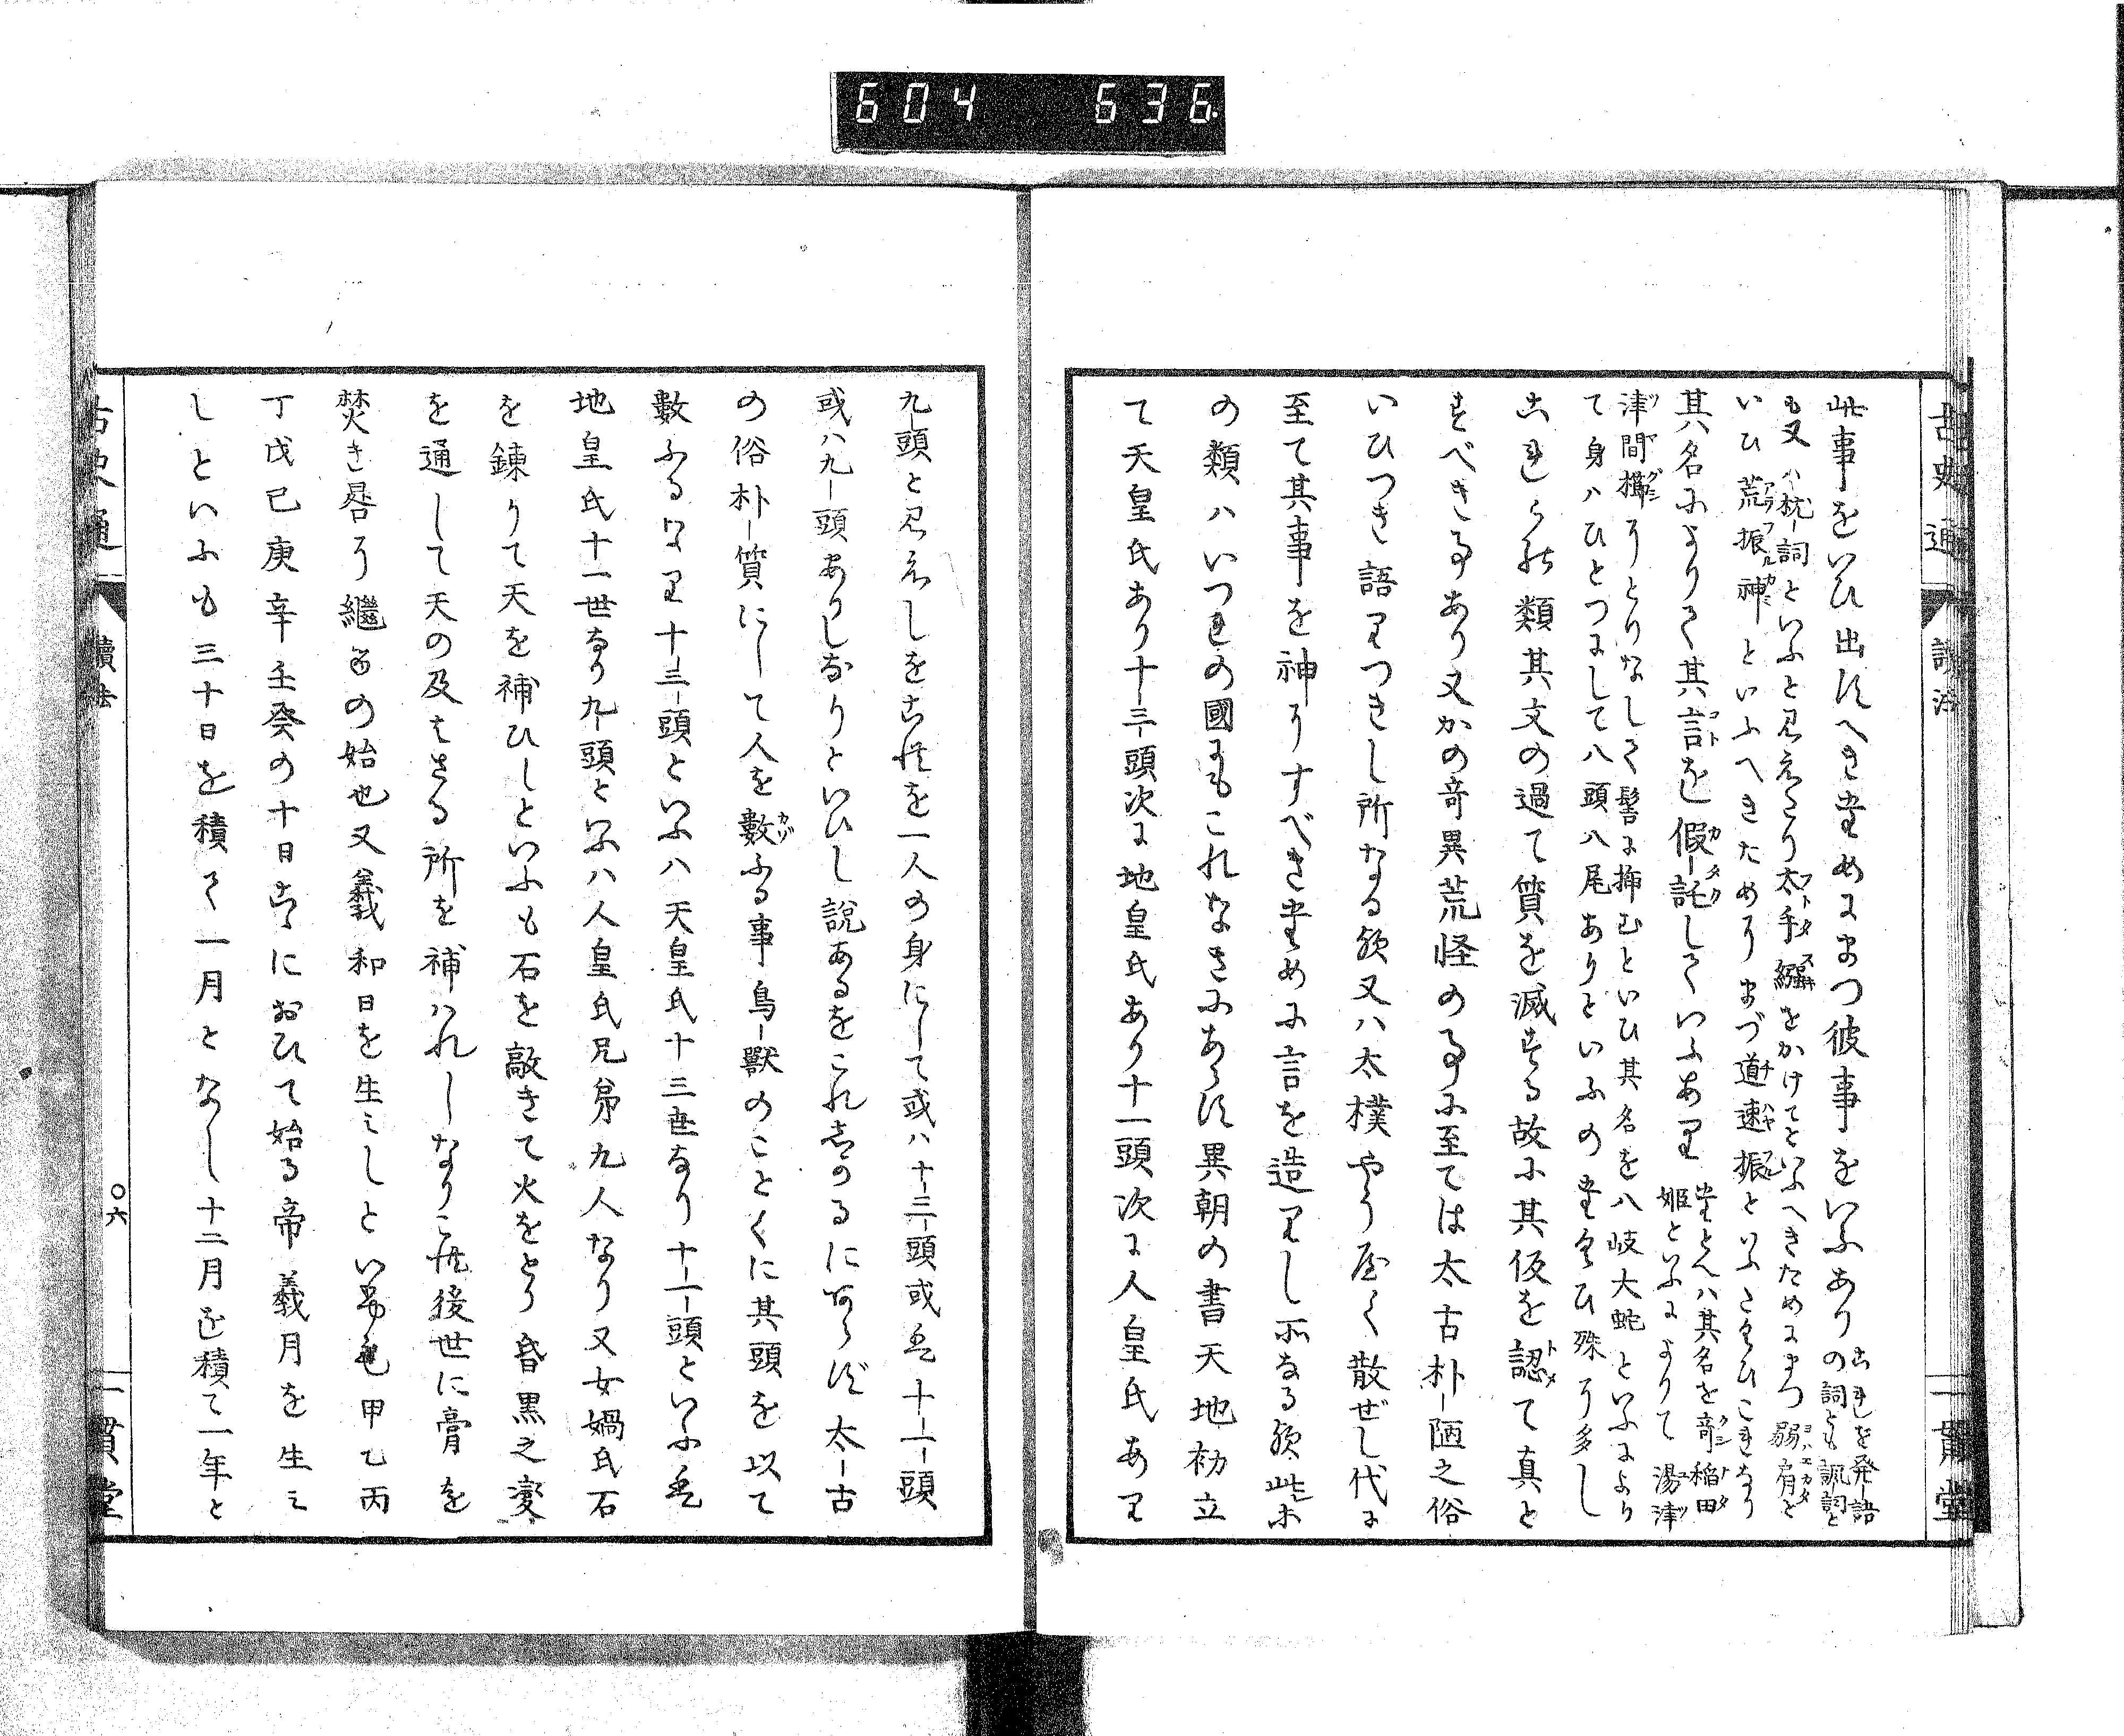 604 636
古史通
讀法
一貫堂
此事をいひ出すへきためにまつ彼事をいふあり これを発語
の詞とも諷詞と
も又ハ枕詞といふと見えたり太手繦をかけてといふへきためにまつ弱肩と
いひ荒振神といふへきためにまづ道速振といふたくひこれなり
其名によりて其言を假託していふあり たとへハ其名を奇稲田
姫といふによりて湯津
津間櫛にとりなして髻に挿むといひ其名を八岐大蛇といふより
て身ハひとつにして八頭八尾ありといふのたくひ殊に多し
これらの類其文の過て質を滅する故に其仮を認て真と
すべき事あり又かの奇異荒怪の事に至ては太古朴陋之俗
いひつき語りつきし所なる歟又ハ太樸やう屋く散ぜし代に
至て其事を神にすべきために言を造りし所なる歟此等
の類ハいつれの國にもこれなきにあらす異朝の書天地初立
て天皇氏あり十三頭次に地皇氏あり十一頭次に人皇氏あり
九頭と見えしをこれを一人の身にして或ハ十三頭或は十一頭
或ハ九頭ありしなりといひし説あるをこれしかるにあらず太古
の俗朴質にして人を數ふる事鳥獸のことくに其頭を以て
數ふるなり十三頭といふハ天皇氏十三世なり十一頭といふは
地皇氏十一世なり九頭といふハ人皇氏兄弟九人なり又女媧氏石
を錬りて天を補ひしといふも石を敲きて火をとり昏黒之変
を通して天の及はさる所を補ハれしなりこれ後世に膏を
焚き晷に繼るの始也又羲和日を生ミしといふ事も甲乙丙
丁戊己庚辛壬癸の十日こゝにおひて始る帝羲月を生ミ
しといふも三十日を積て一月となし十二月を積て一年と
古史通
讀法
〇六
一貫堂